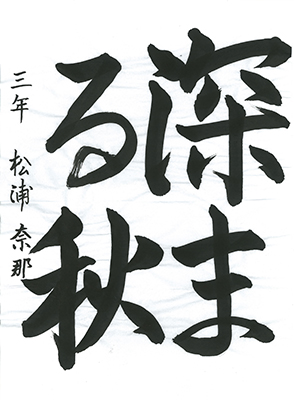 深ま
る秋
三年 松浦奈那